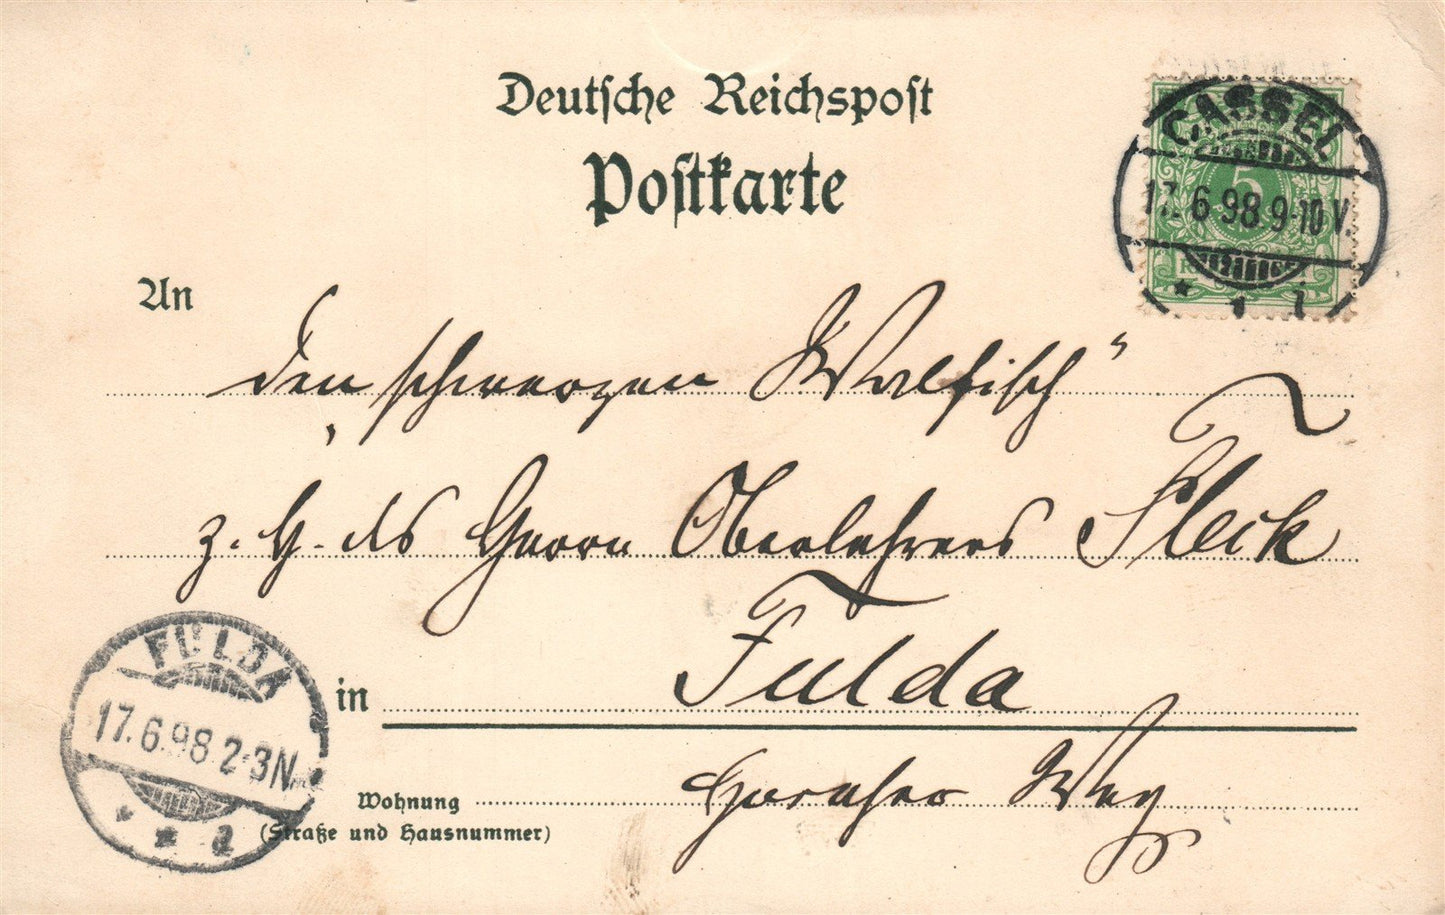 Deutsche Reichspost
Postkarte
CASSEL
5
17.6.98.9-10V.
An
den „schwarzen Walfisch“
z. H. des Herrn Oberlehrers Fleck
in Fulda
FULDA
17.6.98 2-3N
Wohnung Horaser Weg
(Straße und Hausnummer)